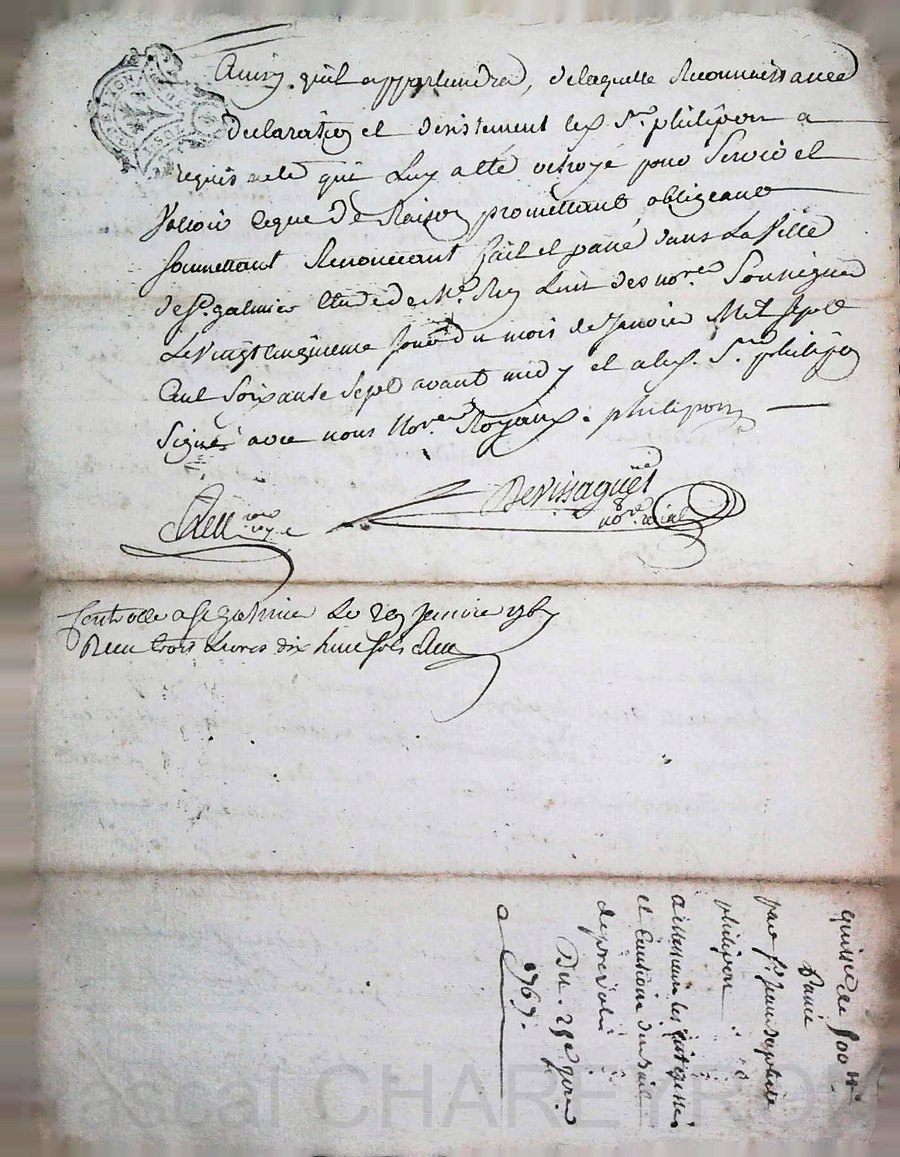 Ainsy quil appartiendra, delaquelle Reconnaissance
declaration et desistement led. Sr. philipon a
requis acte qui Luy a eté octroyé pour Servir et
Valloir ceque De Raison promettant obligeant
soumettant Renoncant fait et passé dans La Ville
de St. galmier Etude de Me. Rey Lun des nores. Soussignés
Le vingt cinquieme Jour du mois de Janvier Mil Sept
Cent Soixante Sept avant midy et a led. Sr. philipon
Signé avec nous Nores. Royaux. philipon
Devissaguet
nore. royal
Controlle a St galmier Le 29 Janvier 1767
Recu trois Livres dix huit sols
quittance de 500 ll.
Passée
par Sr. Jean baptiste
philipon
et Caution du bail
Du. 25e Janv.
1767.
Pascal CHAREYRON